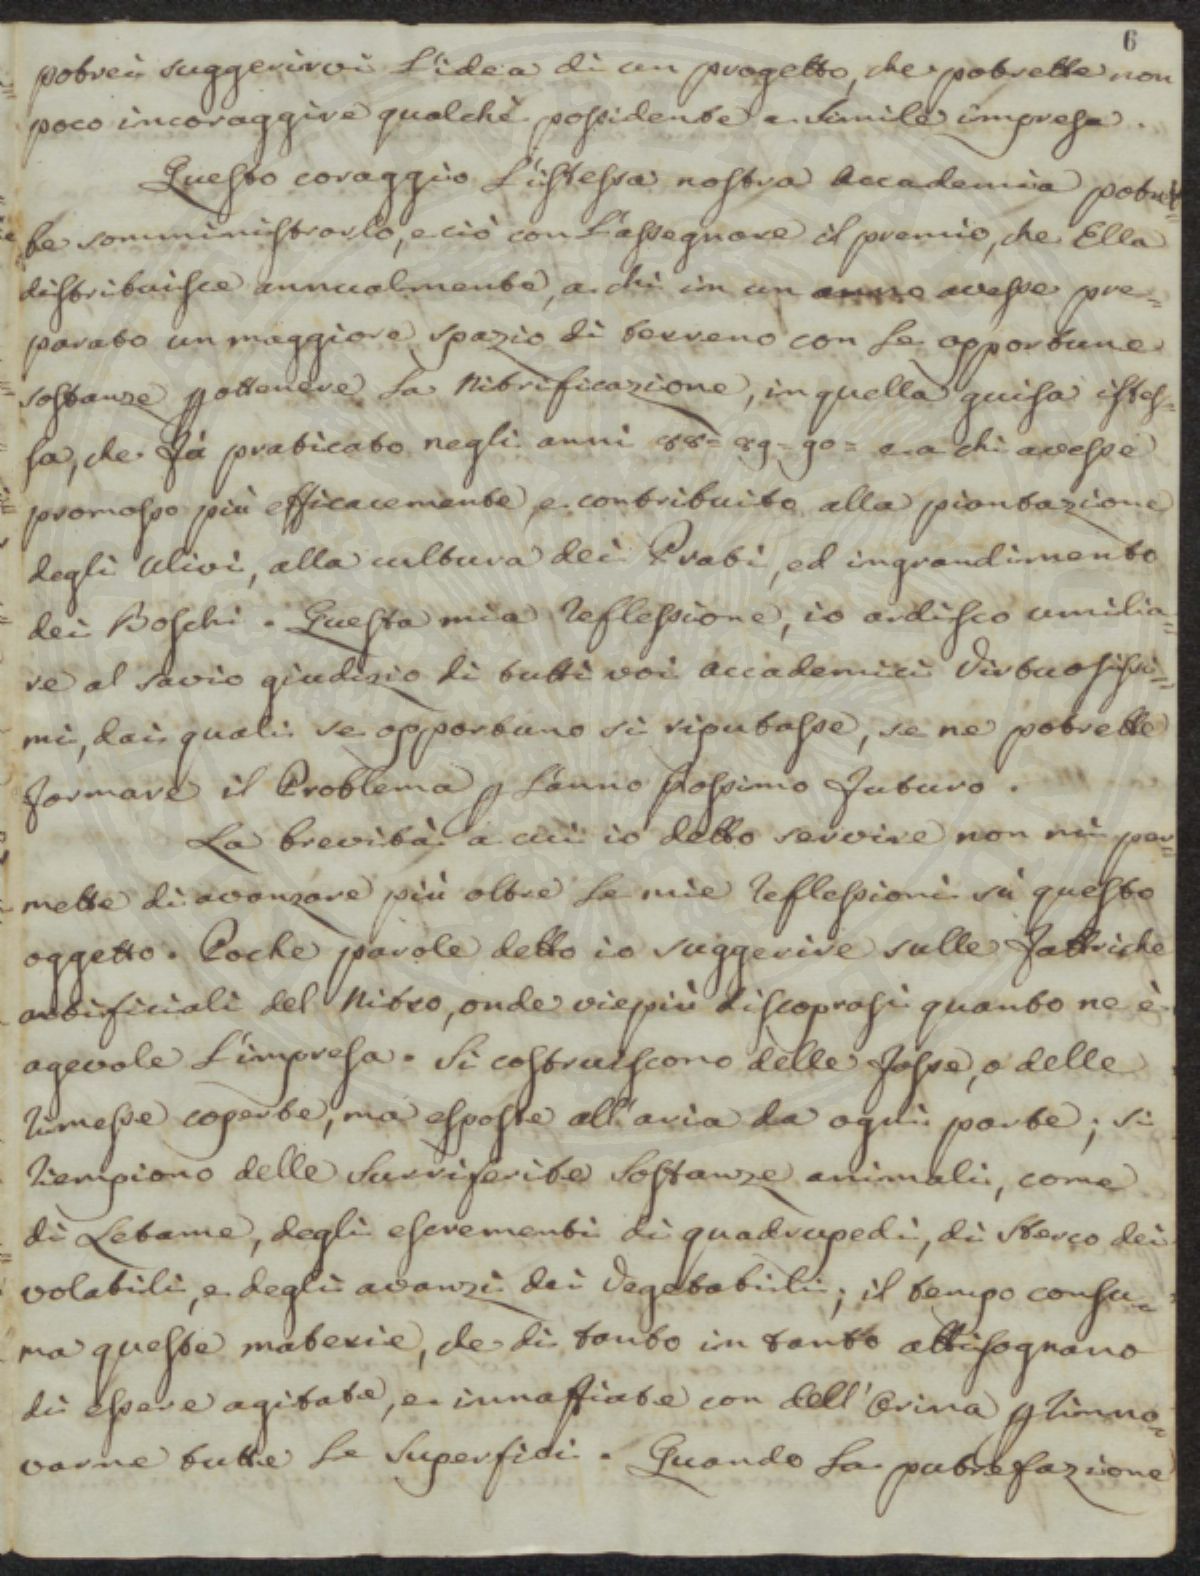 6
potrei suggerirvi l'idea di un progetto, che potrebbe non
poco incoraggire qualche possidente a simile impresa.
Questo coraggio l'istessa nostra Accademia potreb=
be somministrarlo, e ciò con l'assegnare il premio, che Ella
distribuisce annualmente, a chi in un anno avesse pre=
parato un maggiore spazio di terreno con le opportune
sostanze p ottenere la Nitrificazione, in quella guisa istes=
sa, che fù praticato negli anni 88= 89= 90= e a chi avesse
promosso più efficacemente, e contribuito alla piantazione
degli Ulivi, alla cultura dei Prati, ed ingrandimento
dei Boschi. Questa mia reflessione, io ardisco umilia=
re al savio giudizio di tutti voi accademici Virtuosissi=
mi, dai quali se opportuno si riputasse, se ne potrebbe
formare il Problema p l'anno prossimo futuro.
La brevità a cui io debbo servire non mi per=
mette di avanzare più oltre le mie reflessioni sù questo
oggetto. Poche parole debbo io suggerire sulle fabbriche
artificiali del Nitro, onde viepiù discoprasi quanto ne è
agevole l'impresa. Si costruiscono delle fosse, o delle
rimesse coperte, ma esposte all'aria da ogni parte; si
riempiono delle surriferite sostanze animali, come
di Letame, degli escrementi di quadrupedi, di sterco dei
volatili, e degli avanzi dei Vegetabili; il tempo consu=
ma queste materie, che di tanto in tanto abbisognano
di essere agitate, e innaffiate con dell'Orina p rinno=
varne tutte le superfici. Quando la putrefazione